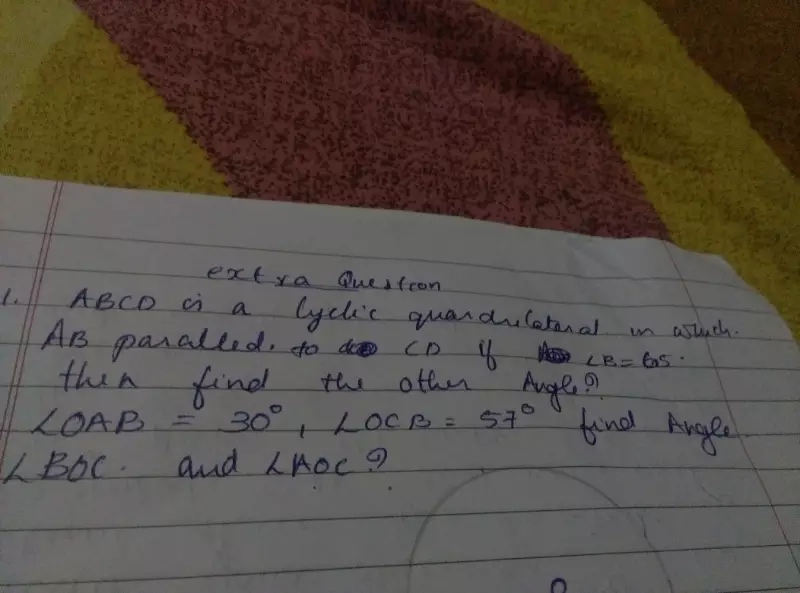 extra Question
1. ABCD is a Cyclic quardrilateral in which.
AB paralled. to CD if ∠B = 65.
then find the other Angle?
∠OAB = 30°, ∠OCB = 57° find Angle
∠BOC. and ∠AOC?
O